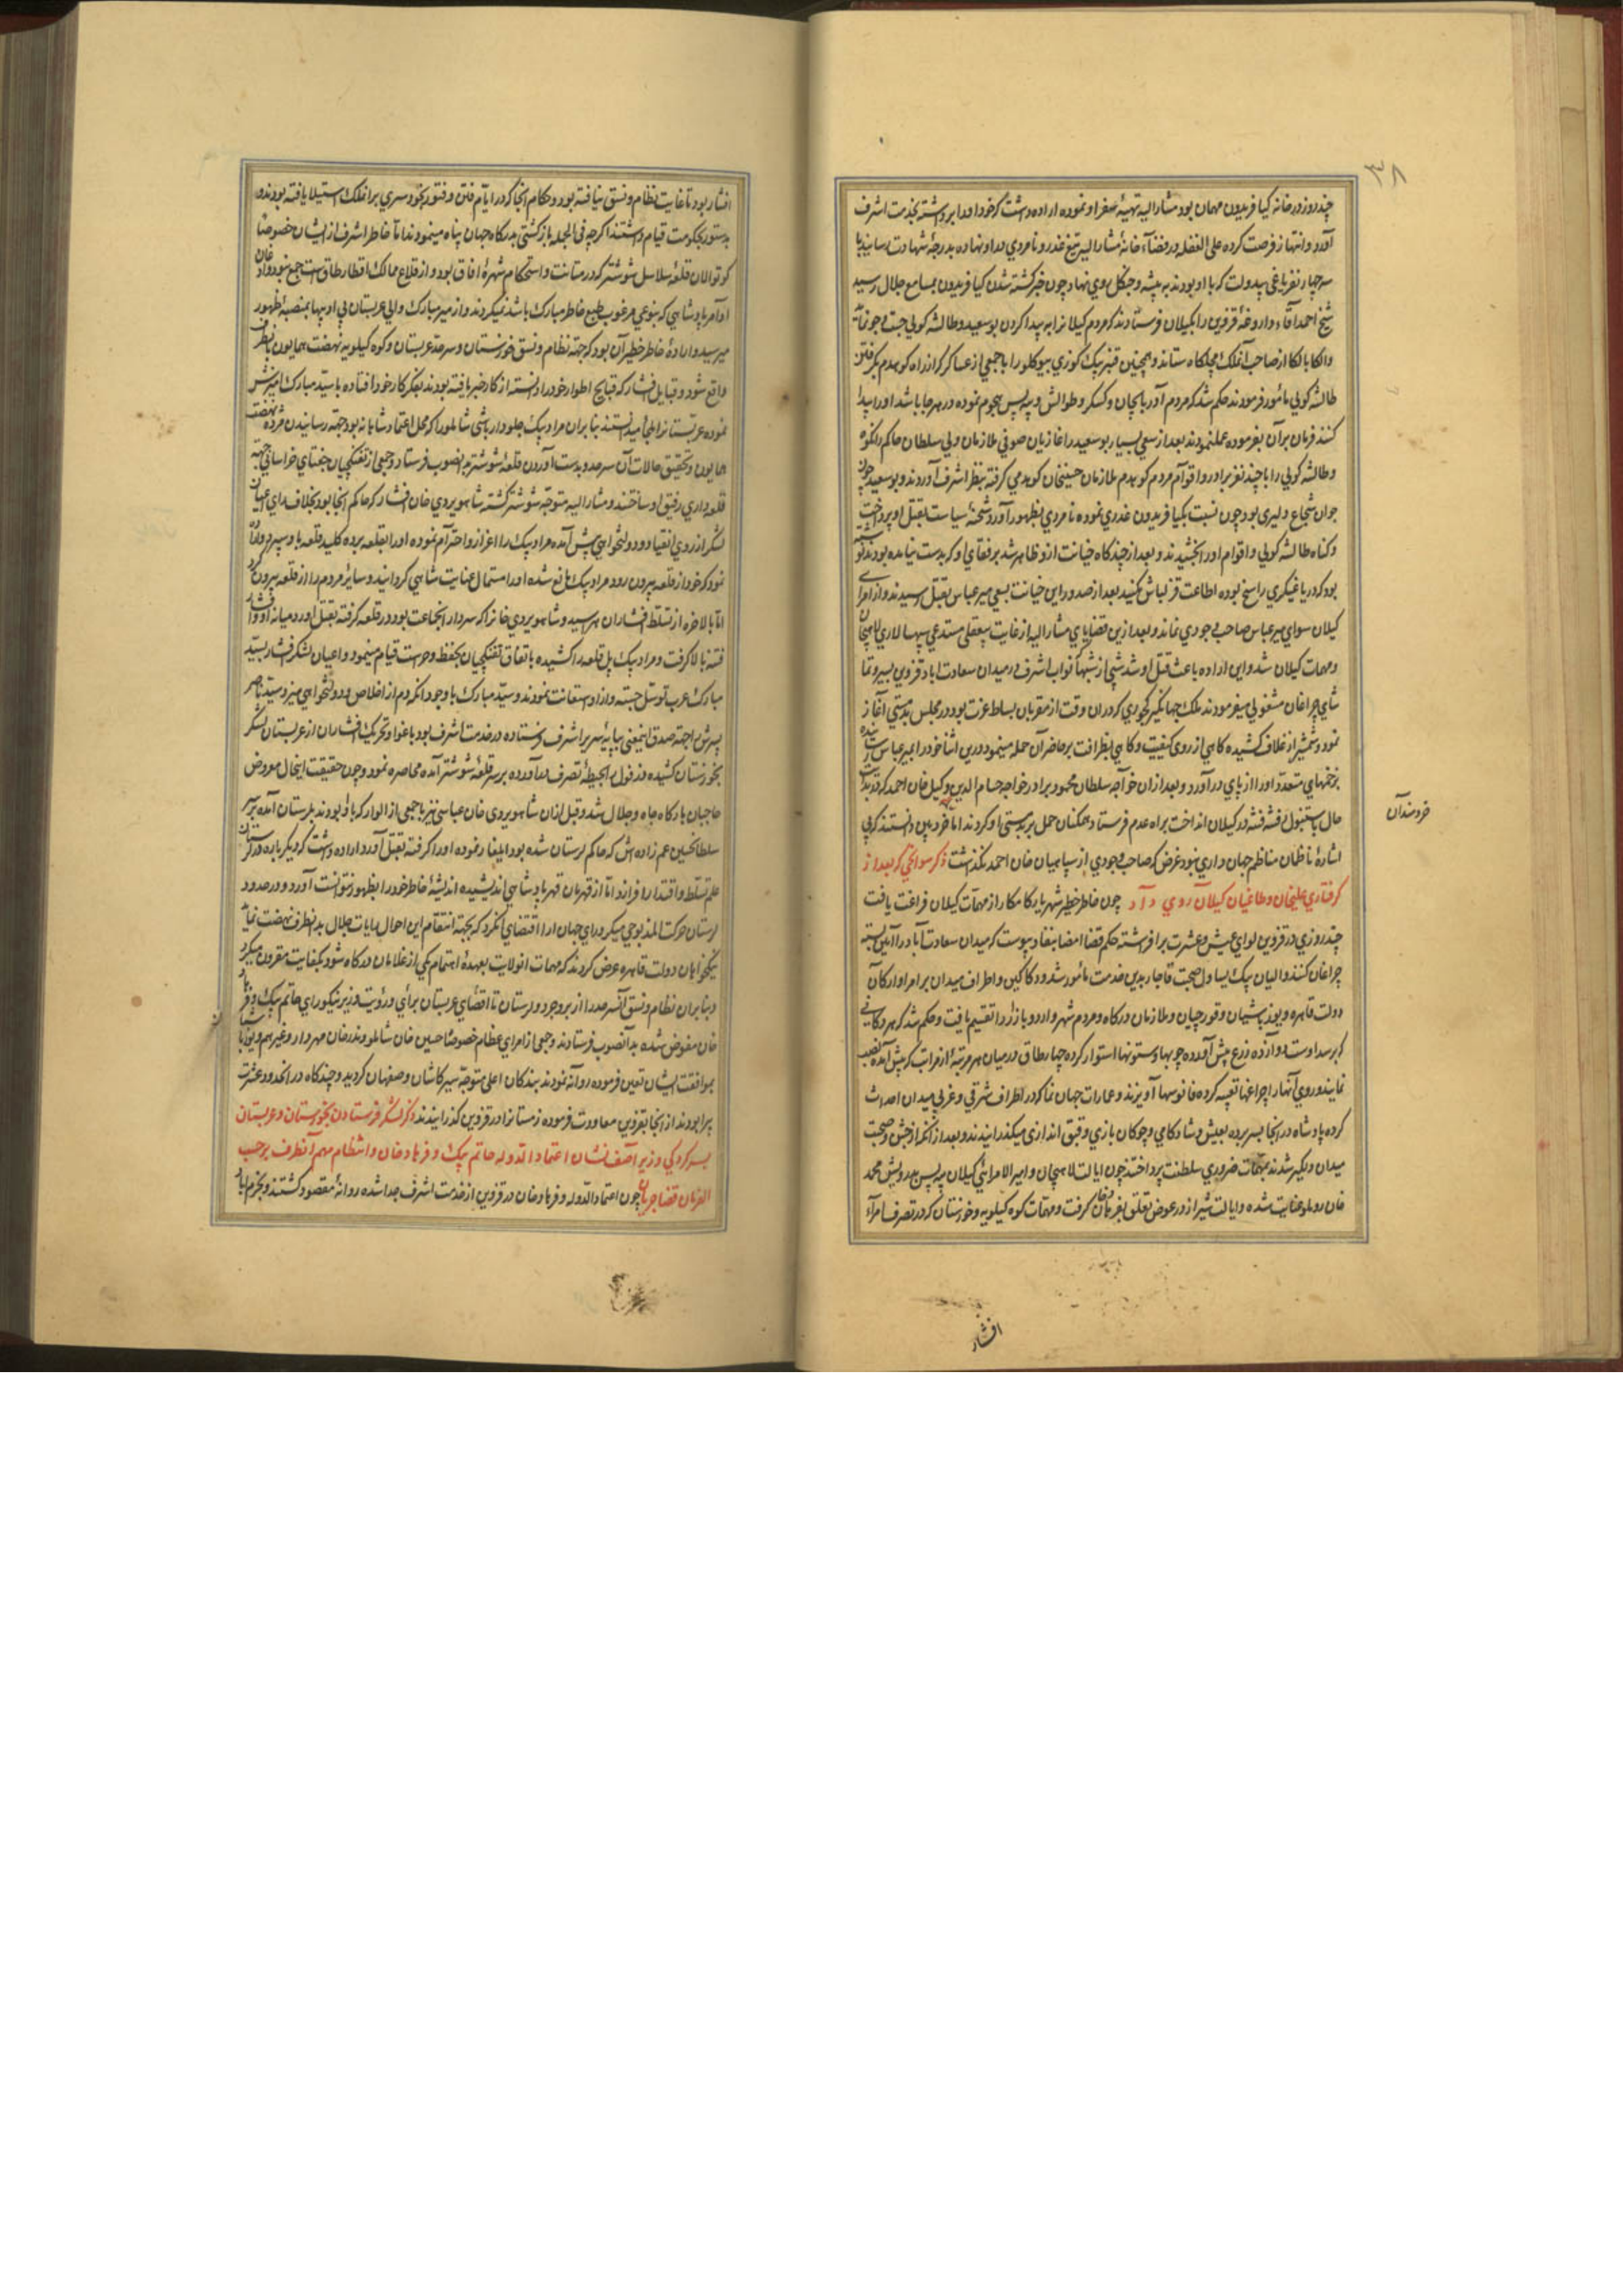 ٣٨
چند روز در خانه کیا فریدون مهمان بود مشارالیه تهیهٔ سفر او نموده اراده داشت که خود او را برداشته بخدمت اشرف
آورد و انتهاز فرصت کرده علی الغفله در فضاء خانهٔ مشارالیه تیغ غدر و نامردی بدو نهاده بدرجهٔ شهادت رسانید با
سه چهار نفر یاغی بیدولت که با او بودند به بیشه و جنگل روی نهاد و چون خبر کشته شدن کیا فریدون بمسامع جلال رسید
شیخ احمد آقاء داروغهٔ قزوین را بکیلان فرستادند که مردم کیلانرا به پیدا کردن بوسعید و طالشه کولی جست و جو نماید
والکا بالکا از صاحب آنملک مچلکا ستاند و همچنین قنبر بیک کوزی بیوکلو را با جمعی از عساکر که از راه کوهدم بگرفتن
طالشه کولی مأمور فرمودند حکم شد که مردم آذربایجان و کسکر و طوالش و بیه پس هجوم نموده در هر جا باشد او را پیدا
کنند فرمان بران بفرموده عمل نمودند بعد از سعی بسیار بوسعید را غازیان صوفی ملازمان ولی سلطان حاکم رانکوه
و طالشه کولی را با چند نفر برادر و اقوام مردم کوهدم ملازمان حسینخان کوهدمی کرفته بنظر اشرف آوردند و بوسعید چون
جوان شجاع دلیری بود چون نسبت بکیا فریدون غدری نموده نامردی بظهور آورد شحنهٔ سیاست بقتل او پرداخت
و کناه طالشه کولی و اقوام او را بخشیدند و بعد از چندکاه خیانت ازو ظاهر شد برفقای او که بدست نیامده بودند نوشته
بود که در یاغیکری راسخ بوده اطاعت قزلباش نکنید بعد از صدور این خیانت بسعی میر عباس بقتل رسیدند و از امرای
کیلان سوای میر عباس صاحب وجودی نماند و بعد ازین قضایای مشارالیه از غایت بیعقلی مستدعی سپهسالاری لاهیجان
و مهمات کیلان شد و این اراده باعث قتل او شد شبی از شبها که نواب اشرف در میدان سعادت اباد قزوین بسیر و تما
شای چراغان مشغولی میفرمودند ملک جهانکیر کجوری که دران وقت از مقربان بساط عزت بود در مجلس بدمستی آغاز
نمود و شمشیر از غلاف کشیده کاهی از روی کیفیت و کاهی بظرافت بر حاضران حمله مینمود درین اثنا خود را بمیر عباس رسانیده
بزخمهای متعدد او را از پای درآورد و بعد ازان خواجه سلطان محمود برادر خواجه حسام الدین وکیل خان احمد که
حال باستنبول رفته فتنه در کیلان انداخت براه عدم فرستاد همکنان حمل بر بدمستی او کردند اما خرده بین دانستند که بی
خردمندان
اشارهٔ ناظمان مناظم جهان داری نبود غرض که صاحب وجودی از سپاهیان خان احمد نکذشت ذکر سوانحی که بعد از
کرفتاری علیخان و طاغیان کیلان روی داد چون خاطر خطیر شهریار کامکار از مهمات کیلان فراغت یافت
چند روزی در قزوین لوای عیش و عشرت برافروشته حکم قضا امضا بنفاذ پیوست که میدان سعادت آباد را آئین بسته
چراغان کنند و الیان بیک یساول صحبت قاجار بدین خدمت مأمور شد و دکاکین و اطراف میدان بر امرا و ارکان
دولت قاهره و یوزباشیان و قورچیان و ملازمان درکاه و مردم شهر و اردو بازار را تقسیم یافت و حکم شد که هر دکانی
نمایند و روی آنها را چراغها تعبیه کرده فانوسها آویزند و عمارات جهان نما که در اطراف شرقی و غربی میدان احداث
کرده پادشاه در انجا بسر برده بعیش و شادکامی و چوکان بازی و قبق اندازی میکذرانیدند و بعد از آنکه از جشن و صحبت
میدان دلکیر شدند بمهمات ضروری سلطنت پرداختند چون ایالت لاهیجان و امیر الامرائی کیلان بیه پس بدرویش محمد
خان روملو عنایت شده و ایالت شیراز در عوض تعلق بفرهادخان کرفت و مهمات کوه کیلویه و خوزستان که در تصرف امرآء
افشار
افشار بود تا غایت نظام و نسق نیافته بود و حکام انجا که در ایام فتن و فتور بخودسری برانملک استیلا یافته بودند و
بدستور بحکومت قیام داشتند اکرچه فی الجمله بازکشتی بدرکاه جهان پناه مینمودند اما خاطر اشرف از ایشان خصوصا
کوتوالان قلعهٔ سلاسل شوشتر که در متانت و استحکام شهرهٔ افاق بود و از قلاع ممالک اقطار طاق است جمع نبود و اذعان
اوامر پادشاهی که بنوعی مرغوب طبع خاطر مبارک باشد نمیکردند و از میر مبارک والی عربستان بی ادبیها بمنصهٔ ظهور
میرسید و ارادهٔ خاطر خطیر آن بود که جهة نظام و نسق خوزستان و سرحد عربستان و کوه کیلویه نهضت همایون بانطرف
واقع شود و قبایل افشار که قبایح اطوار خود را دانسته از کار خبر یافته بودند بفکر کار خود افتاده با سید مبارک آمیزش
نموده عربستانرا ملجأ میدانستند بنابران مراد بیک جلودار باشی شاملو را که محل اعتماد شاهانه بود جهة رسانیدن مژده نهضت
همایون و تحقیق حالات آن سرحد و بدست آوردن قلعهٔ شوشتر بدانصوب فرستاد و جمعی از تفنکچیان جغتای خراسانی جهة
قلعه داری رفیق او ساختند و مشارالیه متوجه شوشتر کشته شاهویردی خان افشار که حاکم انجا بود بخلاف رای اعیان
لشکر از روی انقیاد و دولتخواهی پیش آمده مراد بیک را اعزاز و احترام نموده او را بقلعه برده کلید قلعه باو سپرد و اراده
نمود که خود از قلعه بیرون رود مراد بیک مانع شده او را مستمال عنایت شاهی کردانید و سایر مردم را از قلعه بیرون کرد
اما بالاخره از تسلط افشاران هراسید و شاهویردی خانرا که سردار انجماعت بود در قلعه کرفته بقتل اورد میانه او و افشار
فتنه بالا کرفت و مراد بیک پل قلعه را کشیده باتفاق تفنکچیان بحفظ و حراست قیام مینمود و اعیان لشکر افشار بسید
مبارک عرب توسل جسته و از او استعانت نمودند و سید مبارک با وجود انکه دم از اخلاص و دولتخواهی میزد و سید ناصر
پسرش را جهة صدق اینمعنی بپایهٔ سریر اشرف فرستاده در خدمت اشرف بود باغوا و تحریک افشاران از عربستان لشکر
بخوزستان کشیده دزفول را بحیطهٔ تصرف درآورده بر سر قلعهٔ شوشتر آمده محاصره نمود و چون حقیقت اینحال معروض
حاجبان بارکاه جاه و جلال شد و قبل ازان شاهویردی خان عباسی نیز با جمعی از الوار که با او بودند بلرستان آمده بر سر
سلطانحسین عم زاده اش که حاکم لرستان شده بود ایلغار نموده او را کرفته بقتل آورد و اراده داشت که دیکرباره در لرستان
علم تسلط و اقتدار افرازد اما از قهرمان قهر پادشاهی اندیشیده اندیشهٔ خاطر خود را بظهور نتوانست آورد و در صدود
لرستان حرکت المذبوحی میکرد رای جهان آرا اقتضای آن کرد که بجهة انتقام این احوال رایات جلال بدانطرف نهضت نماید
نیکخواهان دولت قاهره عرض کردند که مهمات انولایت بعهدهٔ اهتمام یکی از غلامان درکاه شود بکفایت مقرون میکردد
و بنابران نظام و نسق آنسرحد را از بروجرد و لرستان تا اقصای عربستان برأی و رؤیت وزیر نیکو رای حاتم بیک و فرهاد
خان مفوض شده بدآنصوب فرستادند و جمعی از امرای عظام خصوصا حسین خان شاملو و ذوالفقار خان مهردار و غیرهم
بموافقت ایشان تعین فرموده روانه نمودند بندکان اعلی متوجه سیر کاشان و صفهان کردید و چندکاه در انحدود عشرت
پیرا بودند از انجا بقزوین معاودت فرموده زمستانرا در قزوین کذرانیدند ذکر لشکر فرستادن بخوزستان و عربستان
بسرکردکی وزیر آصف نشان اعتماد الدوله حاتم بیک و فرهاد خان و انتظام مهم آنطرف برحسب
الفرمان قضا جریان چون اعتماد الدوله و فرهادخان در قزوین از خدمت اشرف جدا شده روانهٔ مقصود کشتند و بخرم اباد